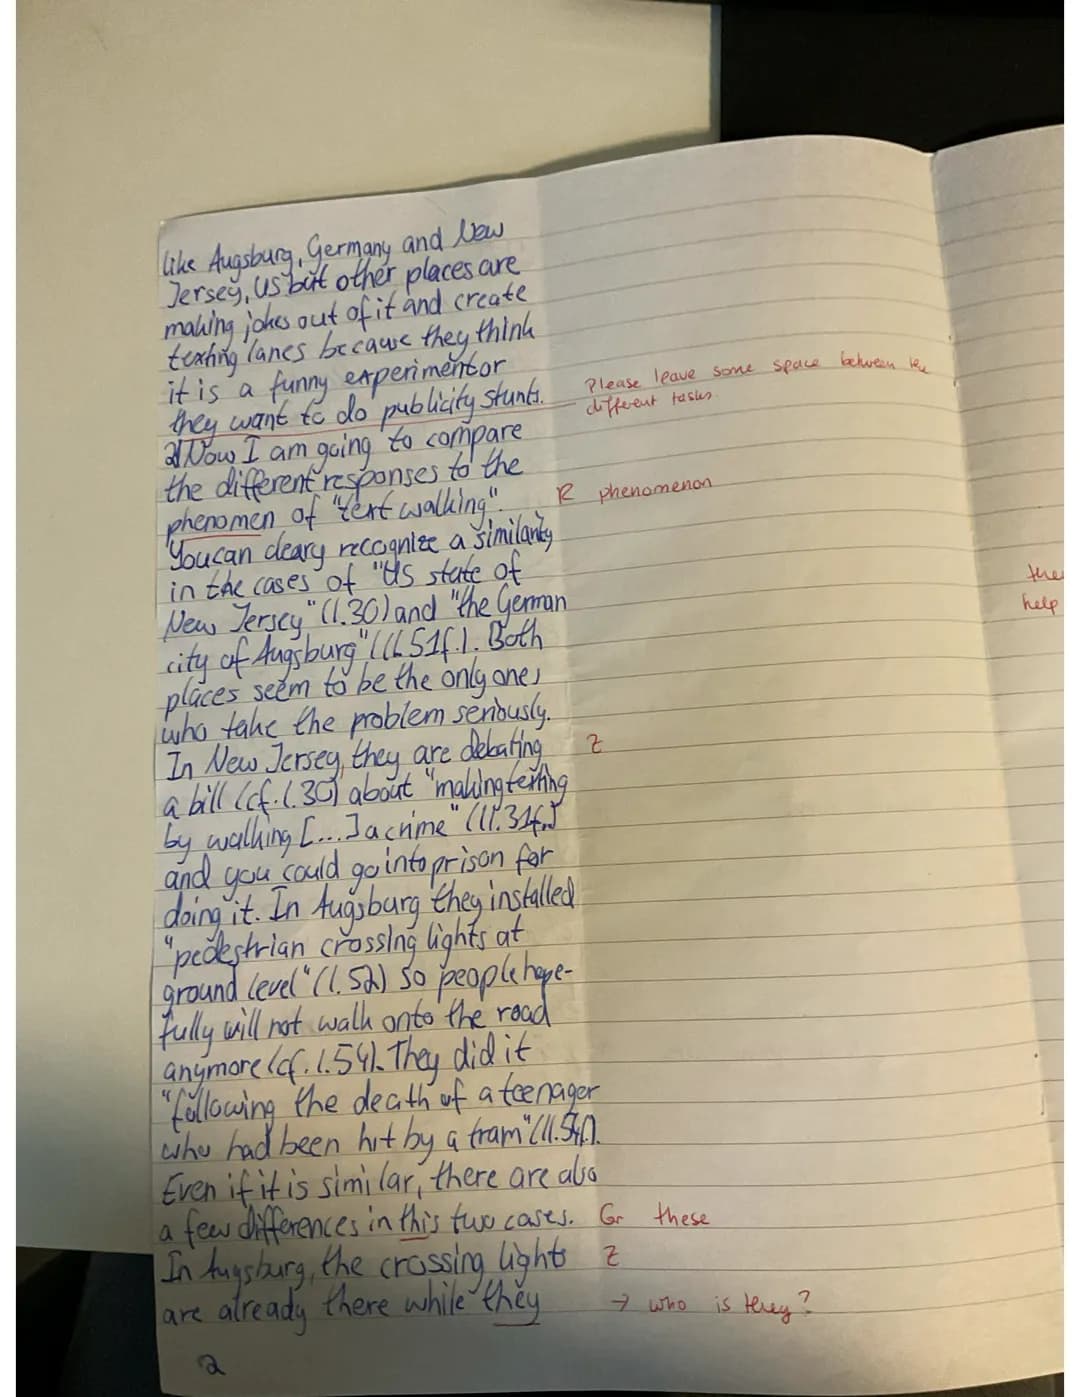 like Augsburg, Germany and New
Jersey, US but other places are
making jokes out of it and create
texting lanes because they think
it is a funny experiment or
they want to do publicity stunts.
Please leave some space between the
different tasks.
2) Now I am going to compare
the different responses to the
phenomen of "text walking".
R phenomenon
You can cleary recognize a similarity
in the cases of "US state of
New Jersey" (l.30) and "the German
city of Augsburg" (ll.51f.). Both
places seem to be the only ones
who take the problem seriously.
In New Jersey, they are debating
Z
a bill (cf. l.30) about "making texting
by walking [...] a crime" (ll.31f.)
and you could go into prison for
doing it. In Augsburg they installed
"pedestrian crossing lights at
ground level" (l.52) so people hope-
fully will not walk onto the road
anymore (cf. l.54). They did it
"following the death of a teenager
who had been hit by a tram" (ll.54f.).
Even if it is similar, there are also
a few differences in this two cases.
Gr these
In Augsburg, the crossing lights
Z
are already there while they
→ who is they?
2
help